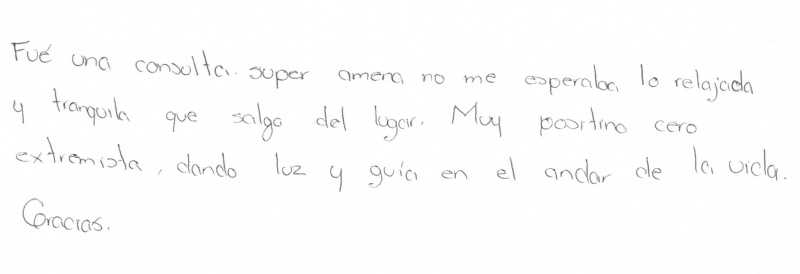 Fué una consulta super amena no me esperaba lo relajada
y tranquila que salgo del lugar. Muy positivo cero
extremista, dando luz y guía en el andar de la vida.
Gracias.